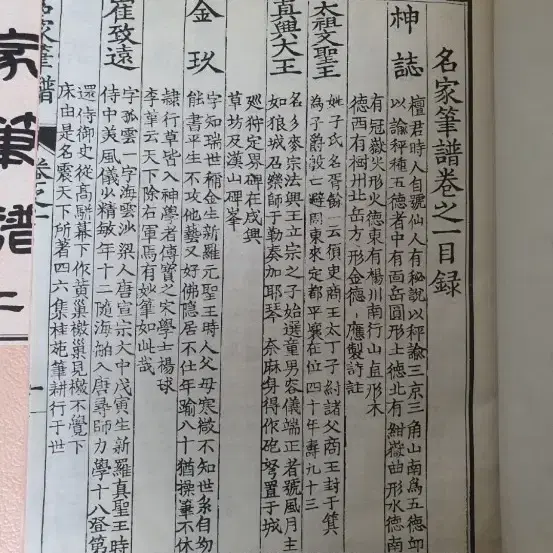 名家筆譜卷之一目録
神誌
檀君時人自號仙人有秘說以秤諭三京三角山南爲五德丘
以諭秤種五德者中有面岳圓形土德北有紺嶽曲形水德南
有冠嶽火形火德東有楊州南行山直形木
德西有桐州北岳方形金德 應製詩註
太祖文聖王
姓子氏名胥餘一云須臾商王太丁子紂諸父商王封于箕
為子爵殷亡避周東來定都平壤在位四十年壽九十三
真興大王
名彡麥宗法興王立宗之子始選童男容儀端正者號風月主
如狼城召樂師于勒奏加耶琴 奈麻身得作砲弩置于城
廵狩定界碑在咸興
草坊及漢山碑峯
金玖
字知瑞世稱金生新羅元聖王時人父母寒微不知世系自幼
能書平生不攻他藝又好佛隱居不仕年踰八十猶操筆不休
隷行草皆入神學者傳寶之宋學士楊球
李革云天下除右軍焉有妙筆如此哉
崔致遠
字孤雲一字海雲沙梁人唐宣宗大中戊寅生新羅真聖王時
侍中美風儀少精敏年十二隨海舶入唐尋師力學十八登第
還侍御史從高駢幕下作黄巢檄巢見檄不覺下
床由是名震天下所著四六集桂苑筆耕行于世
名家筆譜 卷之一 一
家筆譜 二